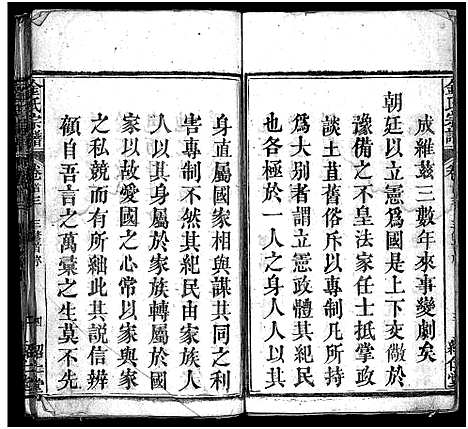 成雜茲三數年來事變劇矣
朝廷以立憲爲國是上下交儆於
豫備之不皇法家任士抵掌政
談土苴舊俗斥以專制凡百有
爲大別者謂立憲政體其紀民
也各極於一人之
身直屬國家相與謀其同之利
害專制不然其紀民由家族人
人以其身屬於家族轉屬於國
家以故愛國之心常以家與家
之私競而有所紲此其説信辨
顧自吾言之萬彙之生莫不先
金氏宗譜
金氏宗譜 卷首三